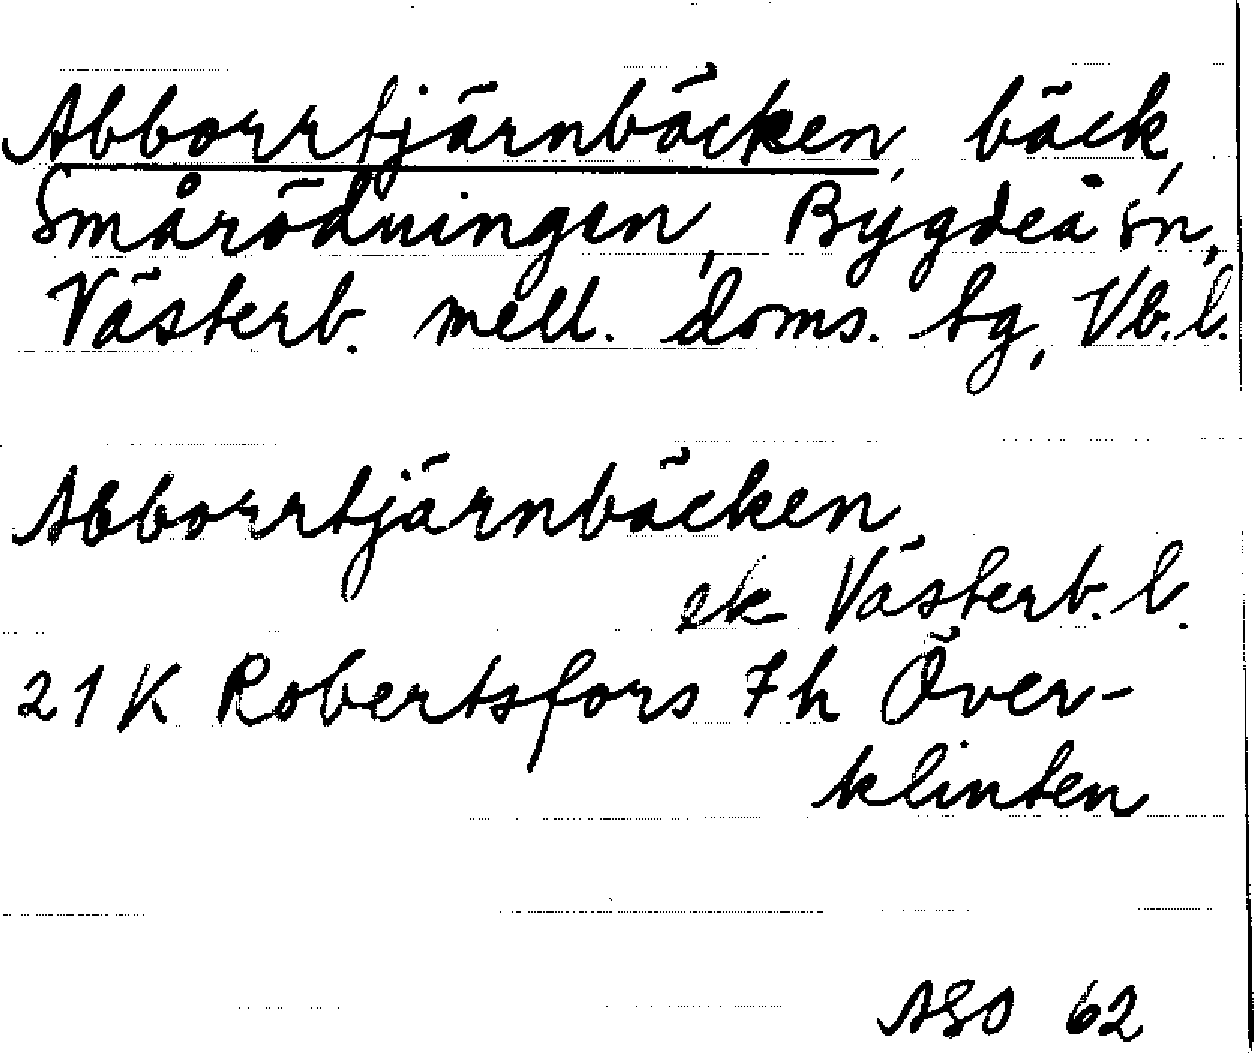 Abborrtjärnbäcken, bäck,
Smårödningen, Bygdeå sn,
Västerb. mell. doms. tg, Vb. l.
Abborrtjärnbäcken
ek Västerb. l.
21 K Robertsfors 7 h Över-
klinten
62